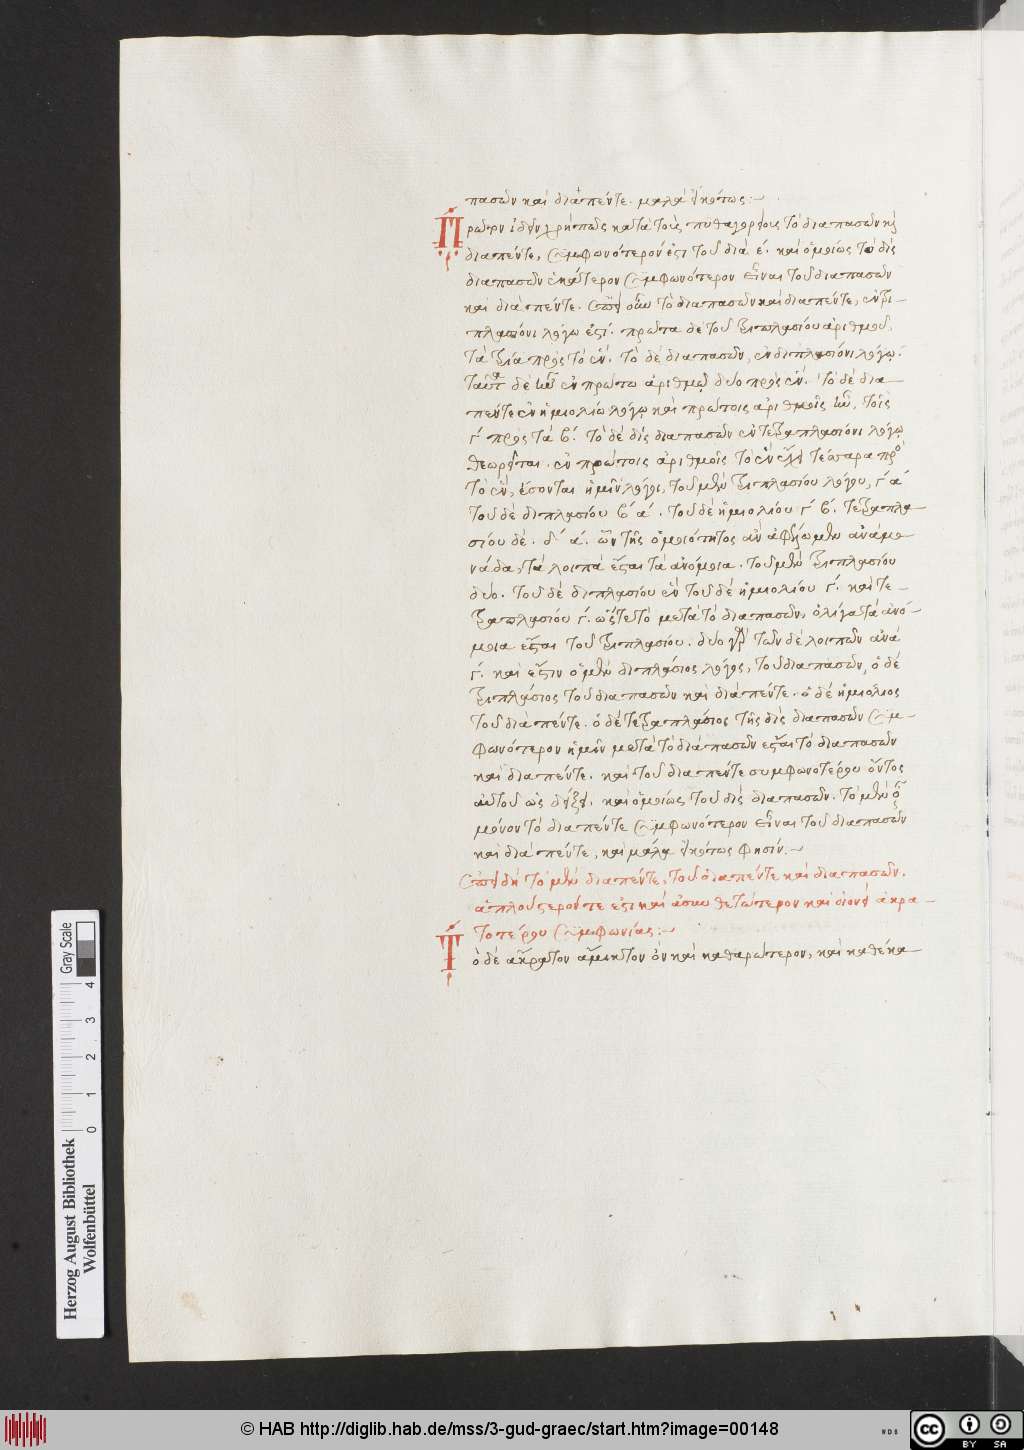 πασῶν καὶ διαπέντε. μάλα εἰκότως:~
Πρῶτον ἰδεῖν χρὴ πῶς κατὰ τοὺς πυθαγορείους τὸ διαπασῶν καὶ
διαπέντε, συμφωνότερόν ἐστι τοῦ διὰ ε΄. καὶ ὁμοίως τοῦ δὶς
διαπασῶν ἑκάτερον συμφωνότερον εἶναι τοῦ διαπασῶν
καὶ διαπέντε. ἐπεὶ οὖν τὸ διαπασῶν καὶ διαπέντε, ἐν τρι-
πλασίονι λόγω ἐστί. πρῶτα δὲ τοῦ τριπλασίου ἀριθμοῦ,
τὰ τρία πρὸς τὸ ἕν. τὸ δὲ διαπασῶν, ἐν διπλασίονι λόγω.
δὲ ἐν πρώτω ἀριθμῶ δύο πρὸς ἕν. τὸ δὲ δια-
πέντε ἐν ἡμιολίω λόγω καὶ πρώτοις ἀριθμοῖς τοῖς
γ΄ πρὸς τὰ β΄. τὸ δὲ δὶς διαπασῶν ἐν τετραπλασίονι λόγω
θεωρεῖται. ἐν πρώτοις ἀριθμοῖς τὸν ἔχει τέσσαρα πρὸς
τὸ ἕν, ἔσονται ἡμῖν λόγοι, τοῦ μὲν τριπλασίου λόγου, γ΄ α΄
τοῦ δὲ διπλασίου β΄ α΄. τοῦ δὲ ἡμιολίου γ΄ β΄. τετραπλα
σίου δὲ. δ΄ α΄. ὧν τῆς ὁμοιότητος ἂν ἀφέλωμεν ἀνὰ μο
νάδα, τὰ λοιπὰ ἔσται τὰ ἀνόμοια. τοῦ μὲν τριπλασίου
δύο. τοῦ δὲ διπλασίου ἓν τοῦ δὲ ἡμιολίου γ΄. καὶ τε-
τραπλασίου γ΄. ὥστε τὸ μετὰ τὸ διαπασῶν, ὀλίγα τὰ ἀνό-
μοια ἔσται τοῦ τριπλασίου. δύο γὰρ τῶν δὲ λοιπῶν ἀνὰ
γ΄. καὶ ἔστιν ὁ μὲν διπλάσιος λόγος, τοῦ διαπασῶν, ὁ δὲ
τριπλάσιος τοῦ διαπασῶν καὶ διαπέντε. ὁ δὲ ἡμιόλιος
τοῦ διαπέντε. ὁ δὲ τετραπλάσιος τῆς δὶς διαπασῶν συμ-
φωνότερον ἡμῖν μετὰ τὸ διαπασῶν ἔσται τὸ διαπασῶν
καὶ διαπέντε. καὶ τοῦ διαπέντε συμφωνοτέρου ὄντος
αὐτοῦ ὡς δείξει. καὶ ὁμοίως τοῦ δὶς διαπασῶν. τὸ μὲν
μόνον τὸ διαπέντε συμφωνότερον εἶναι τοῦ διαπασῶν
καὶ διαπέντε, καὶ μάλα εἰκότως φησίν.~
ἐπεὶ δὴ τὸ μὲν διαπέντε, τοῦ διαπέντε καὶ διαπασῶν.
ἁπλούστερόν τε ἐστὶ καὶ ἀσυνθετώτερον καὶ οἱονεὶ ἀκρα-
τοτέρου συμφωνίας:~
Τὸ δὲ ἄκρατον ἄμικτον ὂν καὶ καθαρώτερον, καὶ καθ' ἕκα
Herzog August Bibliothek
Wolfenbüttel
0 1 2 3 4
Gray Scale
© HAB http://diglib.hab.de/mss/3-gud-graec/start.htm?image=00148
WDB
cc BY SA